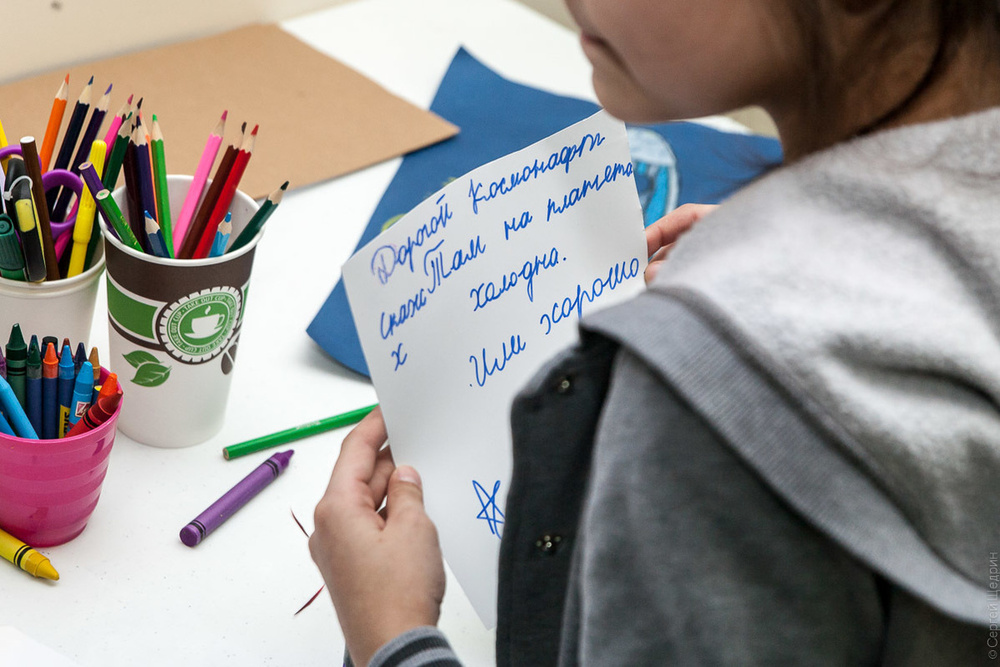 Дорогой Космонафти
скажи Там на планета
х холодна.
Или хорошо
TAKE OUT CUP
© Сергей Щедрин